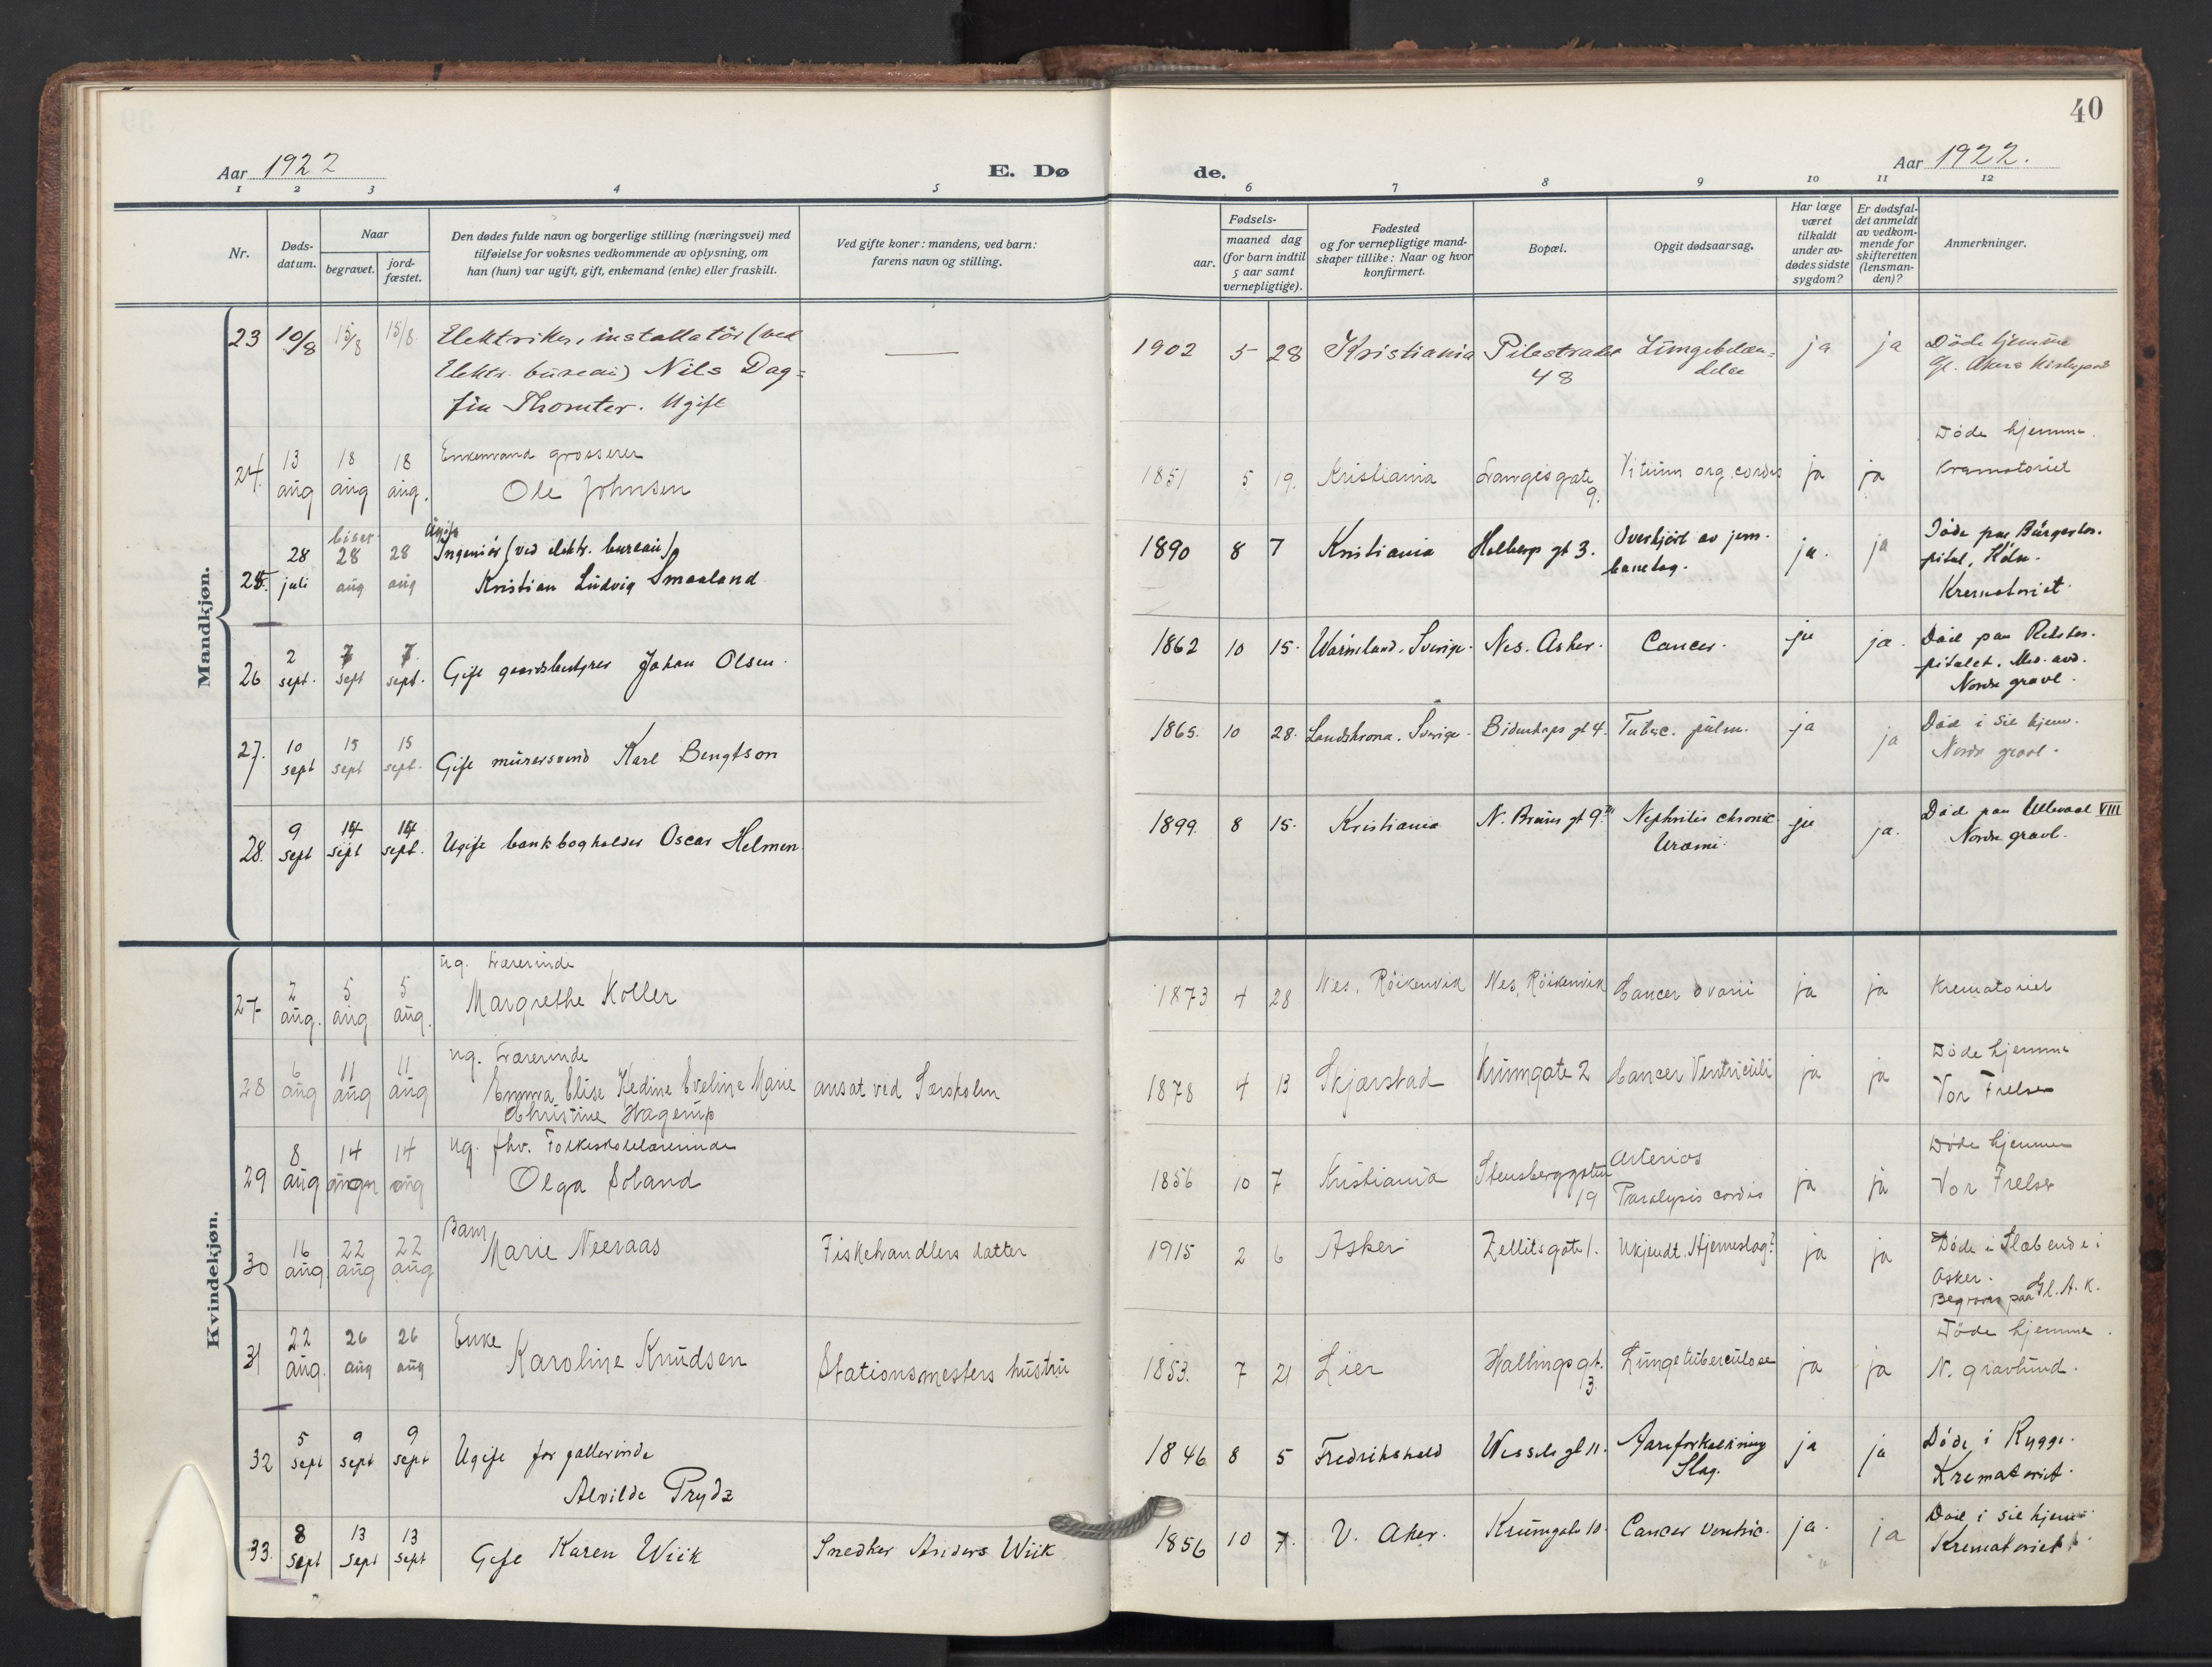 40
Aar 1922
E. Dø
de.
Aar 1922.
1 2 3 4 5 6 7 8 9 10 11 12
Nr.
Døds-
datum.
Naar
begravet.
jord-
fæstet.
Den dødes fulde navn og borgerlige stilling (næringsvei) med
tilføielse for voksnes vedkommende av oplysning, om
han (hun) var ugift, gift, enkemand (enke) eller fraskilt.
Ved gifte koner: mandens, ved barn:
farens navn og stilling.
Fødsels-
aar.
maaned dag
(for barn indtil
5 aar samt
vernepligtige).
Fødested
og for vernepligtige mand-
skaper tillike: Naar og hvor
konfirmert.
Bopæl.
Opgit dødsaarsag.
Har læge
været
tilkaldt
under av-
dødes sidste
sygdom?
Er dødsfal-
det anmeldt
av vedkom-
mende for
skifteretten
(lensman-
den)?
Anmerkninger.
Mandkjøn.
23 10/8 15/8 15/8. Elektriker, installatör (ved
Elektr. büreau) Nils Dag=
fin Thomter. Ugift
—
1902 5 28 Kristiania Pilestradet
48
Lungebetæn=
delse
ja ja Döde hjemme
Gl. Akers Kirkegaard
24. 13
aug
18
aug
18
aug.
Enkemand grosserer
Ole Johnsen
1851 5 19. Kristiania Langesgate
9.
Vitium org. cordis ja ja
Döde hjemme.
Krematoriet
25. 28
juli
biset
28
aug
28
aug
Ugift
Ingeniör (ved elektr. bureau)
Kristian Ludvig Smaaland
1890 8 7 Kristiania Holbergs gt 3. Overkjört av jern-
banetog.
ja. ja
Döde paa Bürgerhos-
pital, Köln.
Krematoriet.
26 2
sept.
7
sept
7.
sept.
Gift gaardsbestyrer Johan Olsen.
1862 10 15. Wärmland. Sverige. Nes. Asker. Cancer. ja ja.
Död paa Rikshos-
pitalet. Med. avd.
Nordre gravl.
27. 10
sept
15
sept
15
sept.
Gift mürersvend Karl Bengtson
1865. 10 28. Landskrona. Sverige. Bidenkaps gt 4. Tuberc. pulm. ja ja
Död i sit hjem.
Nordre gravl.
28. 9
sept
14
sept
14
sept.
Ugift bankbogholder Oscar Helmen
1899. 8 15. Kristiania N. Bruns gt 9.III Nephritis chronic
Uræmi.
ja ja.
Död paa Ullevaal VIII
Nordre gravl.
Kvindekjøn.
27 2
aug.
5
aug
5
aug.
ug. Lærerinde
Margrethe Koller
1873 4 28 Nes, Röikenvik Nes, Röikenvik Cancer ovarii ja ja Krematoriet
28 6
aug
11
aug
11
aug
ug. Lærerinde
Emma Elise Hedine Eveline Marie
Christine Hagerup
ansat ved Særskolen
1878 4 13 Skjærstad Krumgate 2 Cancer Ventriculi ja ja
Döde hjemme
Vor Frelser
29 8
aug
14
14
aug
ug. fhv. Folkeskolelærerinde
Olga Soland
1856 10 7 Kristiania Stensberggaten
19
Arterios
Paralysis cordis
ja ja
Döde hjemme
Vor Frelser
30 16
aug.
22
aug
22
aug
Barn
Marie Neeraas
Fiskehandlers datter
1915 2 6 Asker Zellitsgate 1. Ukjendt. Hjerneslag? ja ja
Döde i Slæbende i
Asker.
Begraves paa Gl. A. K.
31 22
aug.
26
aug
26
aug
Enke
Karoline Knudsen
Stationsmesters hustru
1853. 7 21 Lier Hallings gt.
3.
Lungetüberculose ja ja
Döde hjemme.
N. gravlund.
32 5
sept
9
sept
9
sept
Ugift forfatterinde
Alvilde Prydz
1846 8 5 Fredrikshald Wessels gt 11. Aareforkalkning
Slag.
ja ja
Döde i Rygge.
Krematoriet.
33. 8
sept
13
sept
13
sept
Gift Karen Wiik
Snedker Anders Wiik
1856 10 7. V. Aker. Krumgate 10. Cancer ventric. ja. ja
Död i sit hjem
Krematoriet.